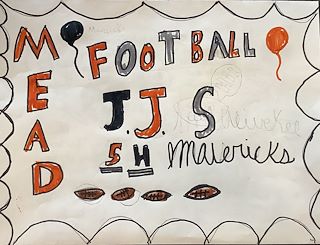 MEAD
FOOTBALL
J.J. S
5 H Mavericks